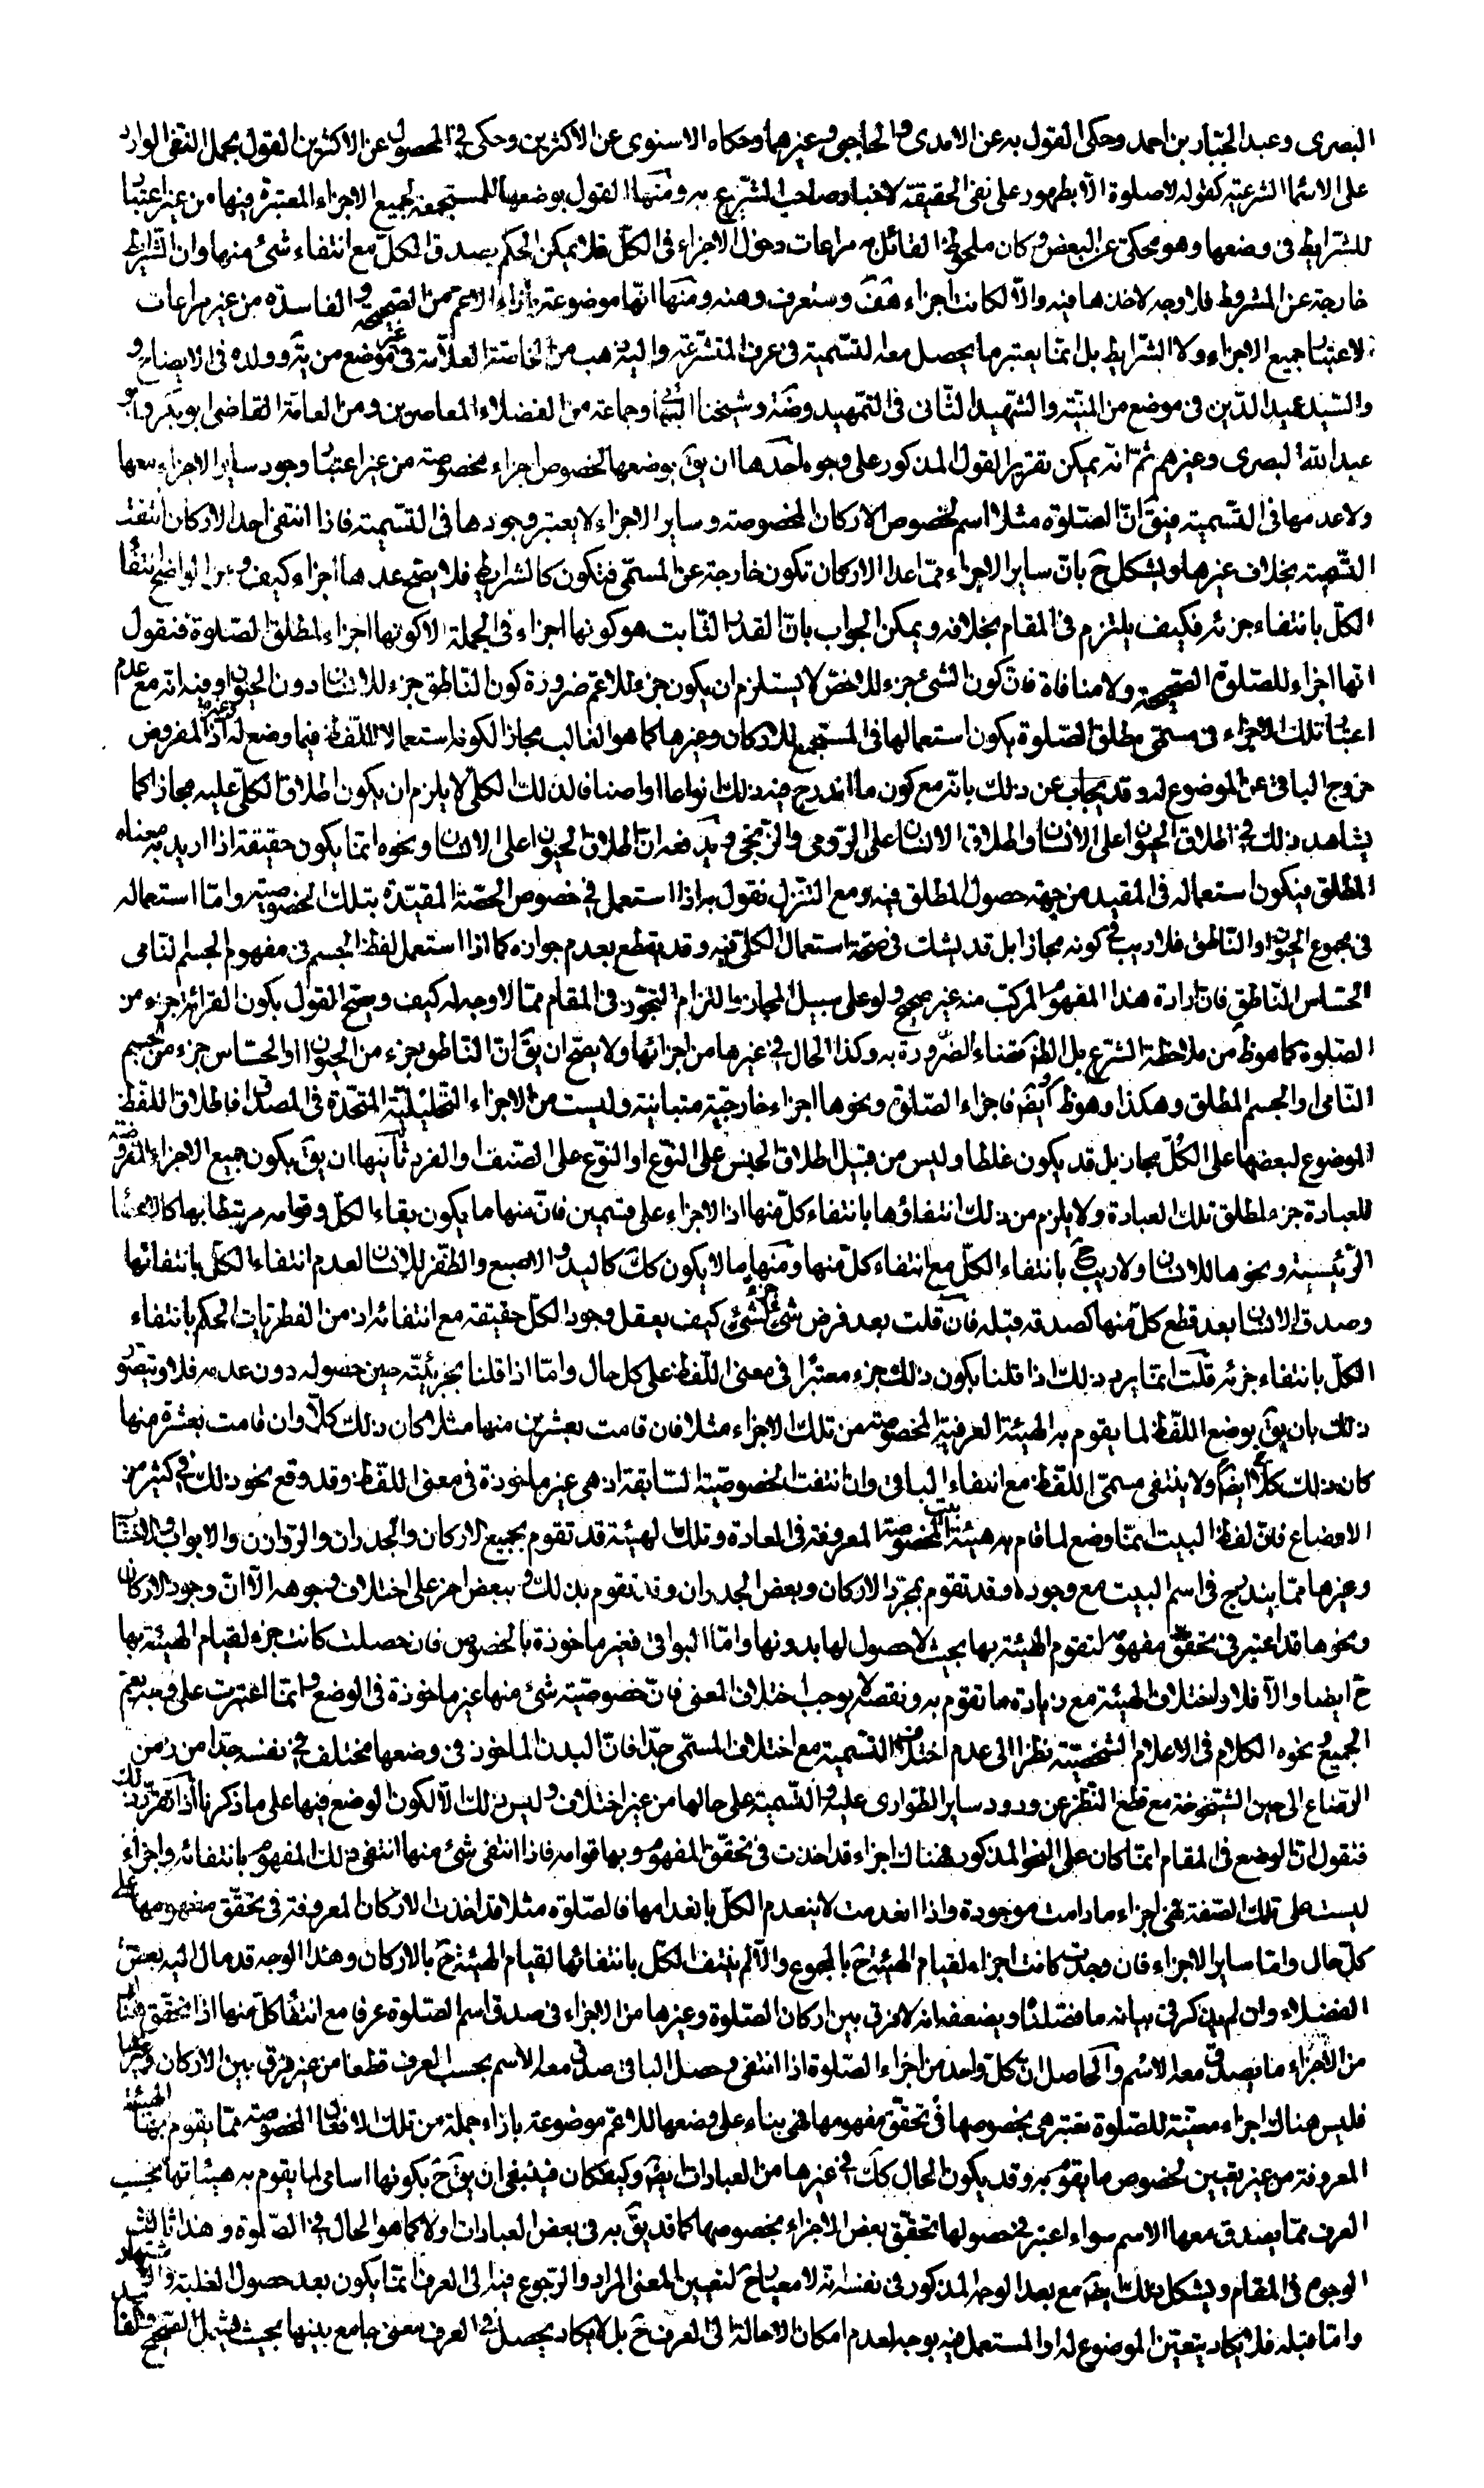 البصرى وعبد الجبار بن احمد وحكى القول به عن الامدى والحاجبى وغيرهما وحكاه الاسنوى عن الاكثرين وحكى فى المحصول عن الاكثرين القول بحمل النفى الوارد
على الاسماء الشرعية كقوله لا صلوة الا بطهور على نفى الحقيقة لاخبار صاحب الشرع به ومنها القول بوضعها للمستجمعة لجميع الاجزاء المعتبرة فيها من غير اعتبار
للشرايط فى وضعها وهو محكى عن البعض وكان ملحوظ القائل به مراعات دخول الاجزاء فى الكل فلا يمكن الحكم بصدق الكل مع انتفاء شئ منها وان الشرايط
خارجة عن المشروط فلا وجه لاخذها فيه والا لكانت اجزاء هف وستعرف وهنه ومنها انها موضوعة بازاء الاعم من الصحيحة والفاسدة من غير مراعات
لاعتبار جميع الاجزاء ولا الشرايط بل انما يعتبر ما يحصل معه التسمية فى عرف المتشرعة واليه ذهب من الخاصة العلامة فى غير موضع من ية وولده فى الايضاح و
والسيد عميد الدين فى موضع من المنية والشهيد الثانى فى التمهيد وضة وشيخنا البهائى وجماعة من الفضلاء المعاصرين ومن العامة القاضى ابو بكر وابو
عبد الله البصرى وغيرهم ثم انه يمكن تقرير القول المذكور على وجوه احدها ان يق بوضعها لخصوص اجزاء مخصوصة من غير اعتبار وجود ساير الاجزاء معها
ولا عدمها فى التسمية فيق ان الصلوة مثلا اسم لخصوص الاركان المخصوصة وساير الاجزاء لا يعتبر وجودها فى التسمية فاذا انتفى احد الاركان انتفت
التسمية بخلاف غيرها ويشكل ح بان ساير الاجزاء مما عدا الاركان تكون خارجة عن المسمى فتكون كالشرايط فلا يصح عدها اجزاء كيف ومن الواضح انتفاء
الكل بانتفاء جزئه فكيف يلتزم فى المقام بخلافه ويمكن الجواب بان القدر الثابت هو كونها اجزاء فى الجملة لا كونها اجزاء لمطلق الصلوة فنقول
انها اجزاء للصلوة الصحيحة ولا منافاة فان كون الشئ جزء للاخص لا يستلزم ان يكون جزء للاعم ضرورة كون الناطق جزء للانسان دون الحيوان وفيه انه مع عدم
اعتبار تلك الاجزاء فى مسمى مطلق الصلوة يكون استعمالها فى المستجمع للاركان وغيرها كما هو الغالب مجازا لكونه استعمالا للفظ فيما وضع له وغيره اذ المفروض
خروج الباقى عن الموضوع له وقد يجاب عن ذلك بانه مع كون ما اندرج فيه ذلك انواعا او اصنافا لذلك الكلى لا يلزم ان يكون اطلاق الكلى عليه مجازا كما
يشاهد ذلك فى اطلاق الحيوان على الانسان واطلاق الانسان على الرومى والزنجى ويدفعه ان اطلاق الحيوان على الانسان ونحوه انما يكون حقيقة اذا اريد به معناه
المطلق فيكون استعماله فى المقيد من جهة حصول المطلق فيه ومع التنزل نقول به اذا استعمل فى خصوص الحصة المقيدة بتلك الخصوصية واما استعماله
فى مجموع الحيوان والناطق فلا ريب فى كونه مجازا بل قد يشك فى صحة استعمال الكلى فيه وقد يقطع بعدم جوازه كما اذا استعمل لفظ الجسم فى مفهوم الجسم النامى
الحساس الناطق فان ارادة هذا المفهوم المركب منه غير صحيح ولو على سبيل المجاز والتزام التجوز فى المقام مما لا وجه له كيف ويصح القول بكون القرائة جزء من
الصلوة كما هو ظ من ملاحظة الشرع بل الظ قضاء الضرورة به وكذا الحال فى غيرها من اجزائها ولا يصح ان يق ان الناطق جزء من الحيوان او الحساس جزء من الجسم
النامى او الجسم المطلق وهكذا وهو ظ وايض فاجزاء الصلوة ونحوها اجزاء خارجية متباينة وليست من الاجزاء التحليلية المتحدة فى المصداق فاطلاق اللفظ
الموضوع لبعضها على الكل مجاز بل قد يكون غلطا وليس من قبيل اطلاق الجنس على النوع او النوع على الصنف والفرد ثانيها ان يق بكون جميع الاجزاء المفروضة
للعبادة جزء لمطلق تلك العبادة ولا يلزم من ذلك انتفاؤها بانتفاء كل منها اذ الاجزاء على قسمين فان منها ما يكون بقاء الكل وقوامه مرتبطا بها كالاعضاء
الرئيسية ونحوها للانسان ولا ريب ح بانتفاء الكل مع انتفاء كل منها ومنها ما لا يكون كك كاليد والاصبع والظفر للانسان لعدم انتفاء الكل بانتفائها
وصدق الانسان بعد قطع كل منها كصدقه قبله فان قلت بعد فرض شئ جزء لشئ كيف يعقل وجود الكل حقيقة مع انتفائه اذ من الفطريات الحكم بانتفاء
الكل بانتفاء جزئه قلت انما يرد ذلك اذا قلنا بكون ذلك جزء معتبرا فى معنى اللفظ على كل حال واما اذا قلنا بجزئيته حين حصوله دون عدمه فلا وتصوير
ذلك بان يق بوضع اللفظ لما يقوم به الهيئة العرفية المخصوصة من تلك الاجزاء مثلا فان قامت بعشرين منها مثلا كان ذلك كلا وان قامت بعشرة منها
كان ذلك كلا ايضا ولا ينتفى مسمى اللفظ مع انتفاء الباقى وان انتفت الخصوصية السابقة اذ هى غير ماخوذة فى معنى اللفظ وقد وقع نحو ذلك فى كثير من
الاوضاع فان لفظ البيت انما وضع لما قام به هيئة البيت المخصوصة المعروفة فى العادة وتلك الهيئة قد تقوم بجميع الاركان والجدران والروازن والابواب والاخشاب
وغيرها مما يندرج فى اسم البيت مع وجوده وقد تقوم بمجرد الاركان وبعض الجدران وقد تقوم بذلك وببعض اخر على اختلاف وجوهه الا ان وجود الاركان
ونحوها قد اعتبر فى تحقق مفهومه لتقوم الهيئة بها بحيث لا حصول لها بدونها واما البواقى فغير ماخوذة بالخصوص فان حصلت كانت جزء لقيام الهيئة بها
ح ايضا والا فلا واختلاف الهيئة مع زيادة ما تقوم به ونقصه لا يوجب اختلاف المعنى فان خصوصية شئ منها غير ماخوذة فى الوضع وانما اعتبرت على وجه يعم
الجميع ونحوه الكلام فى الاعلام الشخصية نظرا الى عدم اختلاف التسمية مع اختلاف المسمى جدا فان البدن الملحوظ فى وضعها مختلف فى نفسه جدا من زمن
الرضاع الى حين الشيخوخة مع قطع النظر عن ورود ساير الطوارى عليه والتسمية على حالها من غير اختلاف وليس ذلك الا لكون الوضع فيها على ما ذكرنا اذا تقرر ذلك
فنقول ان الوضع فى المقام انما كان على النحو المذكور فهناك اجزاء قد اخذت فى تحقق المفهوم وبها قوامه فاذا انتفى شئ منها انتفى ذلك المفهوم بانتفائه واجزاء
ليست على تلك الصفة فهى اجزاء ما دامت موجودة واذا انعدمت لا ينعدم الكل بانعدامها فالصلوة مثلا قد اخذت الاركان المعروفة فى تحقق مفهومها على
كل حال واما ساير الاجزاء فان وجدت كانت اجزاء لقيام الهيئة ح بالمجموع والا لم ينتف الكل بانتفائها لقيام الهيئة ح بالاركان وهذا الوجه قد مال اليه بعض
الفضلاء وان لم يذكر فى بيانه ما فصلناه ويضعفه انه لا فرق بين اركان الصلوة وغيرها من الاجزاء فى صدق اسم الصلوة عرفا مع انتفاء كل منها اذا تحقق هناك
من الاجزاء ما يصدق معه الاسم والحاصل ان كل واحد من اجزاء الصلوة اذا انتفى وحصل الباقى صدق معه الاسم بحسب العرف قطعا من غير فرق بين الاركان وغيرها
فليس هناك اجزاء معينة للصلوة يعتبر هى بخصوصها فى تحقق مفهومها فهى بناء على وضعها للاعم موضوعة بازاء جملة من تلك الافعال المخصوصة مما يقوم بها الهيئة
المعروفة من غير تعيين لخصوص ما يقوم به وقد يكون الحال كك فى غيرها من العبادات ايض وكيف كان فينبغى ان يق ح بكونها اسامى لما يقوم به هيئاتها بحسب
العرف مما يصدق معها الاسم سواء اعتبر فى حصولها تحقق بعض الاجزاء بخصوصها كما قد يق به فى بعض العبادات اولا كما هو الحال فى الصلوة وهذا ثالث
الوجوه فى المقام ويشكل ذلك ايض مع بعد الوجه المذكور فى نفسه انه لا معيار ح لتعيين المعنى المراد والرجوع فيه الى العرف انما يكون بعد حصول الغلبة والاشتهار
واما قبله فلا يكاد يتعين الموضوع له او المستعمل فيه بوجه لعدم امكان الاحالة الى العرف ح بل لا يكاد يحصل فى العرف معنى جامع بينها بحيث يشمل الصحيح والفاسد